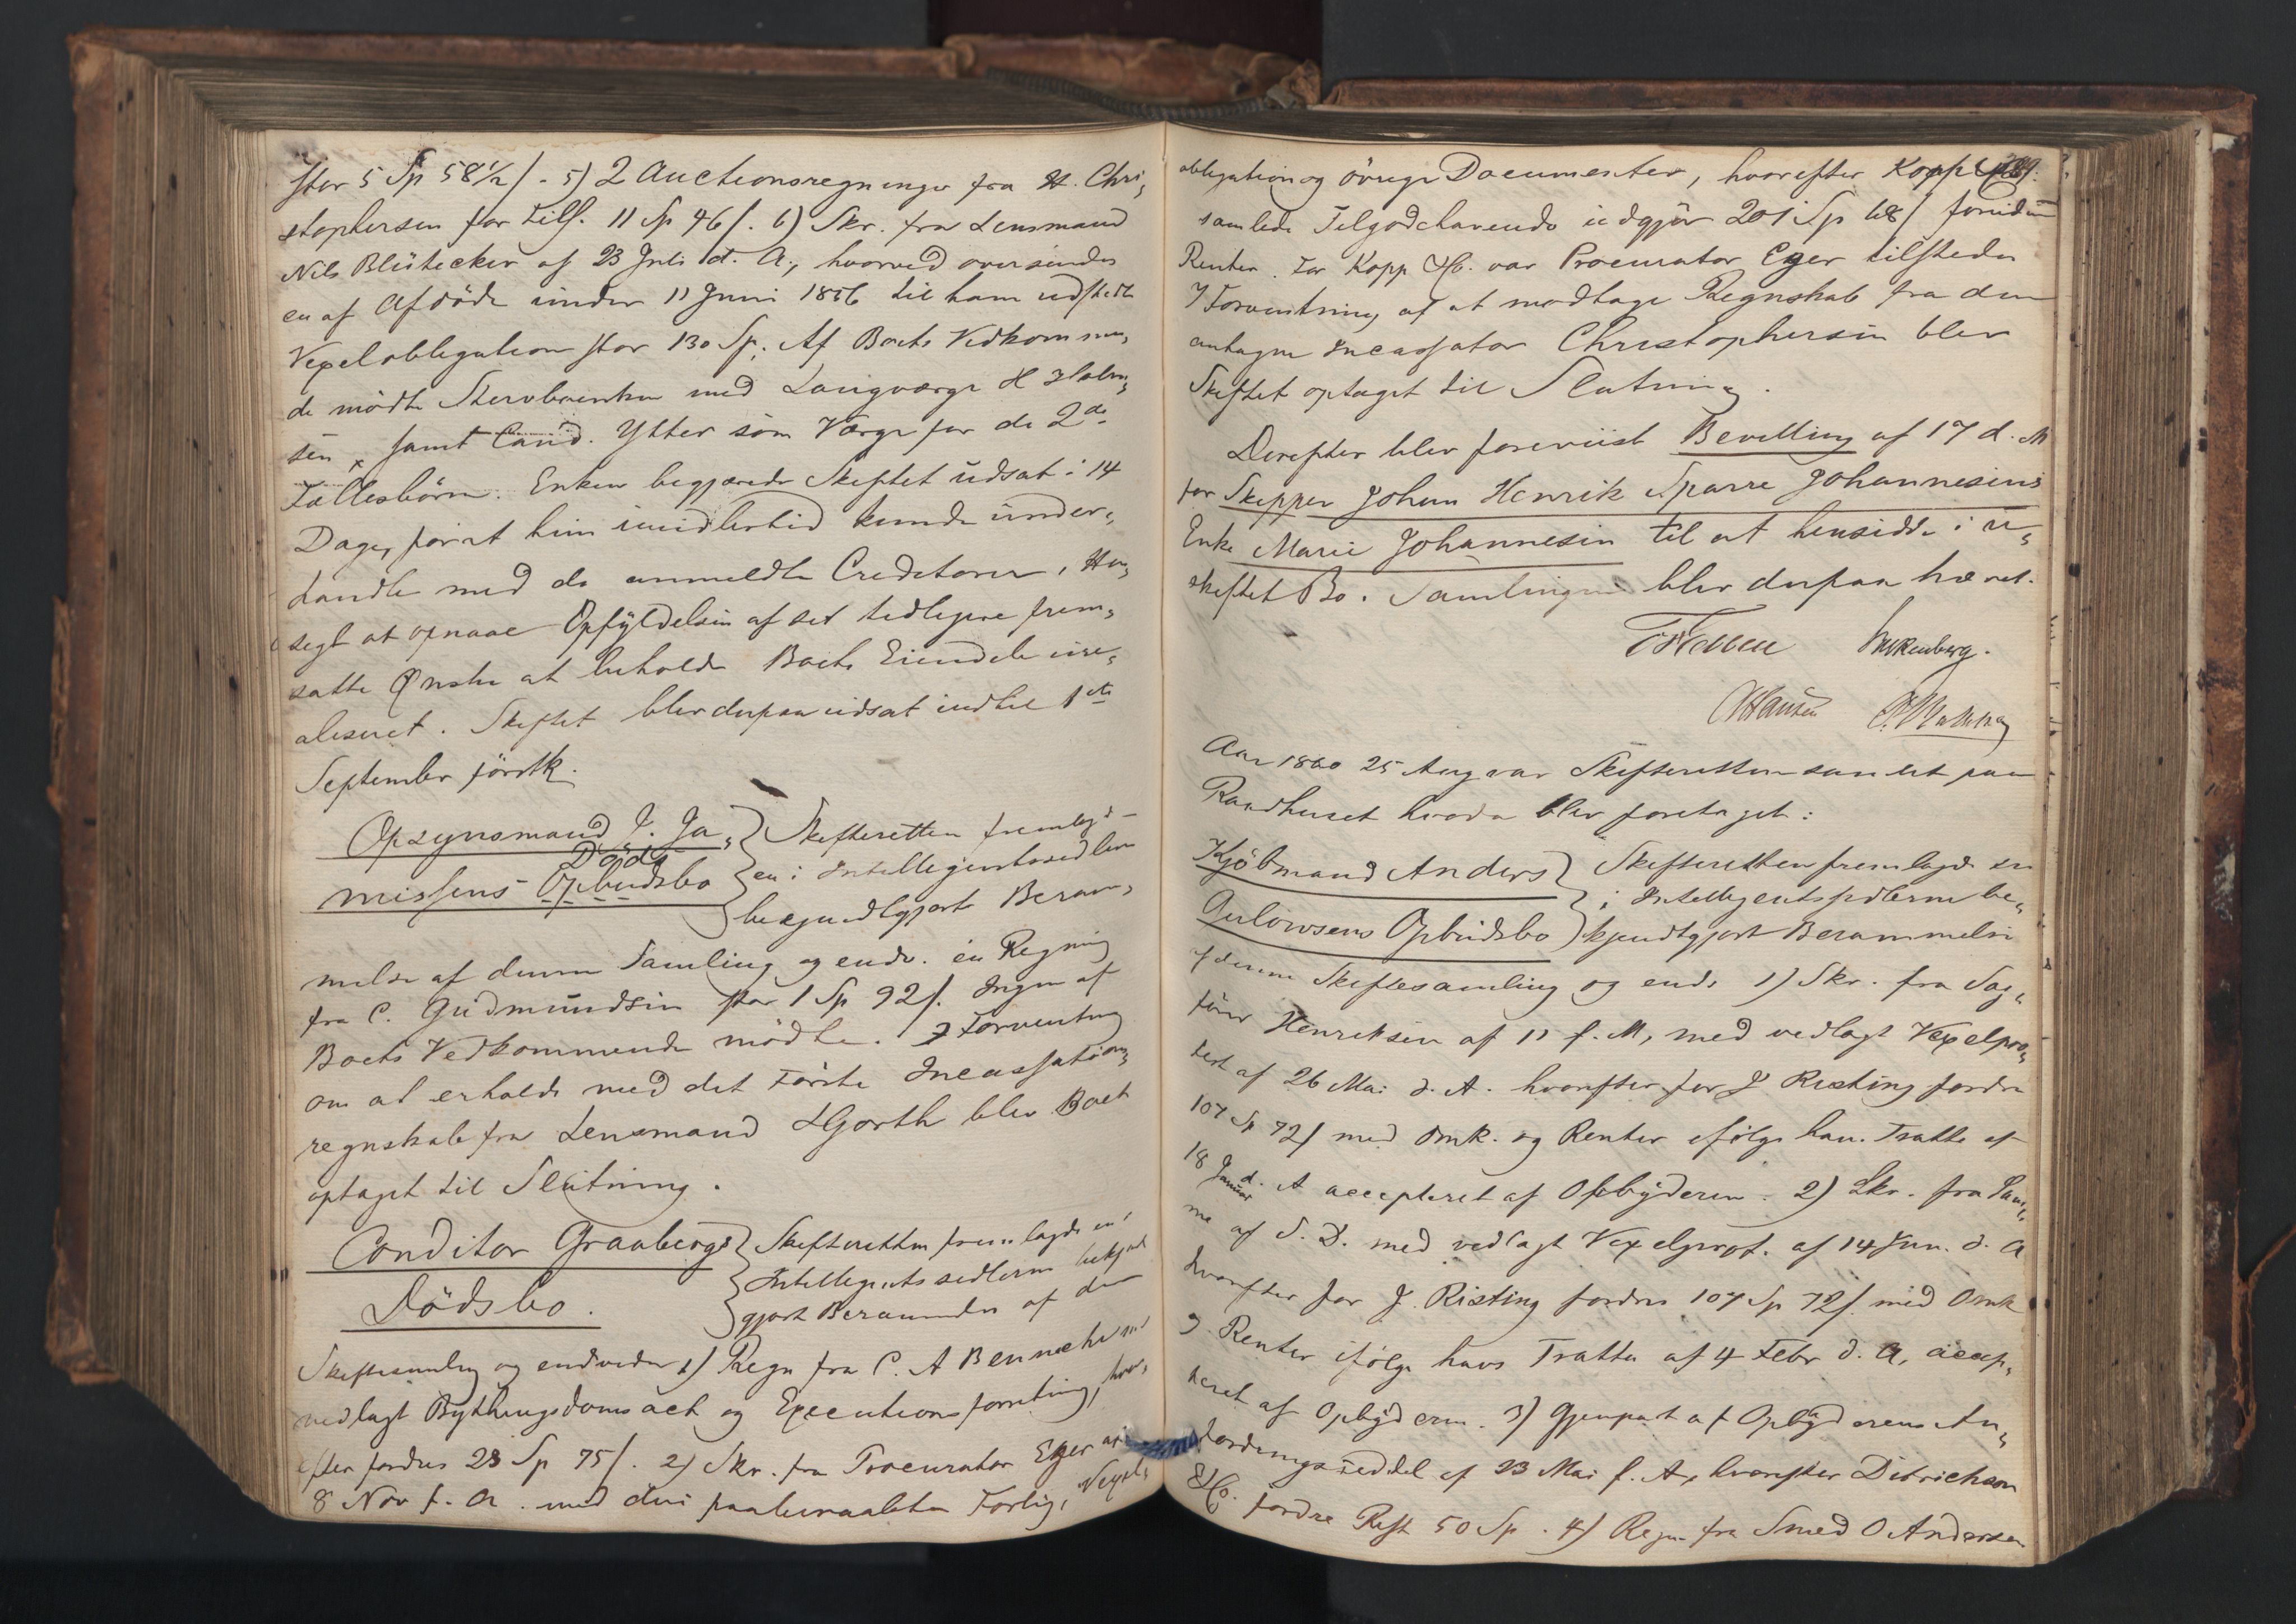 stor 5 Sp 58½ ſ. 5) 2 Auctionsregninger fra H. Chri„
stophersen for tils. 11 Sp 46 ſ. 6) Skr. fra Lensmand
Nils Blütecker af 23 Juli d. A., hvorved oversendes
en af Afdöde under 11 Juni 1856 til ham udstedt
Vexelobligation stor 130 Sp. Af Boets Vedkommen„
de mödte Sterboenken med Laugværge H Halvor„
sen, samt Cand. Ytter som Værge for de 2de
Fællesbörn. Enken begjærede Skiftet udsat i 14
Dage, forat hun imidlertid kunde under„
handle med de anmeldte Creditorer, Hen„
sigt at opnaae Opfyldelsen af sit tidligere frem„
satte Ønske at beholde Boets Eiendele ure„
aliseret. Skiftet blev derpaa udsat indtil 1ste
September förstk.
Opsynsmand J. Ja„
missens Opbudsbo
Döds
Skifteretten fremlagde
en i Intelligentssedlerne
bekjendtgjort Beram„
melse af denne Samling og endv. en Regning
fra C. Gudmundsen stor 1 Sp 92 ſ. Ingen af
Boets Vedkommende mödte. I Forventning
om at erholde med det Förste Incassations„
regnskab fra Lensmand Hjorth blev Boet
optaget til Slutning.
Conditor Graabergs
Dödsbo.
Skifteretten fremlagde en i
Intelligentssedlerne bekjendt
gjort Berammelse af den
Skiftesamling og endvidere 1) Regn fra C. A Benneche med
vedlagt Bythingsdomsact og Executionsforretning, hvor„
efter fordres 23 Sp 75 ſ. 2) Skr. fra Procurator Eger af
8 Nov f. A. med deri paaberaabte Forlig, Vexel„
obligation og övrige Documenter, hvorefter Kopp &Co.
samlede Tilgodehavende udgjör 201 Sp 68 ſ foruden
Renter. For Kopp &Co. var Procurator Eger tilstede.
I Forventning af at modtage Regnskab fra den
antagne Incassator Christophersen blev
Skiftet optaget til Slutning.
Derefter blev foreviist Bevilling af 17 d. M
for Skipper Johan Henrik Sparre Johannesens
Enke Marie Johannesen til at hensidde i u„
skiftet Bo. Samlingen blev derpaa hævet.
Hansen
Aar 1860 25 Aug var Skifteretten samlet paa
Raadhuset hvorda blev foretaget:
Kjöbmand Anders
Aulowsens Opbudsbo
Skifteretten fremlagde en
i Intelligentssedlerne be„
kjendtgjort Berammelse
af denne Skiftesamling og endv 1) Skr. fra Sag„
förer Henriksen af 11 f. M, med vedlagt Vexelpro„
test af 26 Mai d. A. hvorefter for J Risting fordres
107 Sp 72 ſ med Omk. og Renter ifölge hans Tratte af
18 Januar d. A accepteret af Opbyderen. 2) Skr. fra Sam„
me af S. D. med vedlagt Vexelprot. af 14 Jun. d. A
hvorefter for J. Risting fordres 107 Sp 72 ſ. med Omk
og Renter ifölge hans Tratte af 4 Febr d. A, accep„
teret af Opbyderen. 3) Gjenpart af Opbyderens An„
fordringsseddel af 23 Mai f. A, hvorefter Ditrichson
&Co. fordre Rest 50 Sp. 4) Regn fra Smed O Andersen